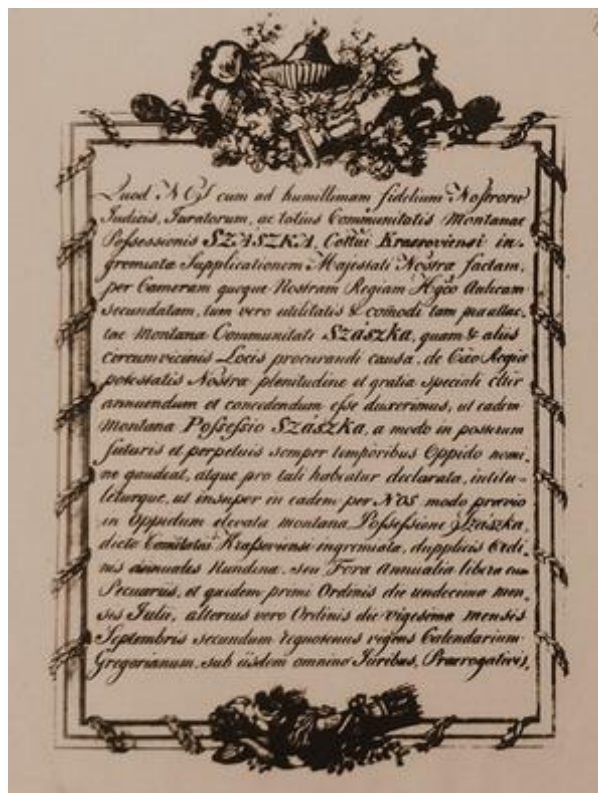 Quod NOS cum ad humillimam fidelium Nostrorū
Judicis, Juratorum, ac totius Communitatis Montanae
Possessionis SZASZKA, Cottui Krasoviensi in-
gremiatae Supplicationem Majestati Nostrae factam,
per Cameram quoque Nostram Regiam Hgco Aulicam
secundatam, tum vero utilitatis & comodi tam praellac-
tae Montanae Communitati Szászka, quam & aliis
circumvicinis Locis procurandi causa, de Cäo Regia
potestatis Nostrae plenitudine et gratia speciali cltr
annuendum et concedendum esse duxerimus, ut eadem
Montana Possessio Szászka, a modo in posterum
futuris et perpetuis semper temporibus Oppido nomi-
ne gaudeat, atque pro tali habeatur declarata, intitu-
leturque, ut insuper in eadem per NOS modo praevio
in Oppidum elevata montana Possessione Szaszka,
dicto Comitatui Krassoviensi ingremiata, dupplicis Ordi-
nis annuales Nundinae, seu Fora Annualia libera cum
Pecuariis, et quidem primi Ordinis die undecima men-
sis Julii, alterius vero Ordinis die vigesima mensis
Septembris secundum regnotenus vigens Calendarium
Gregorianum, sub iisdem omnino Juribus, Praerogativis,